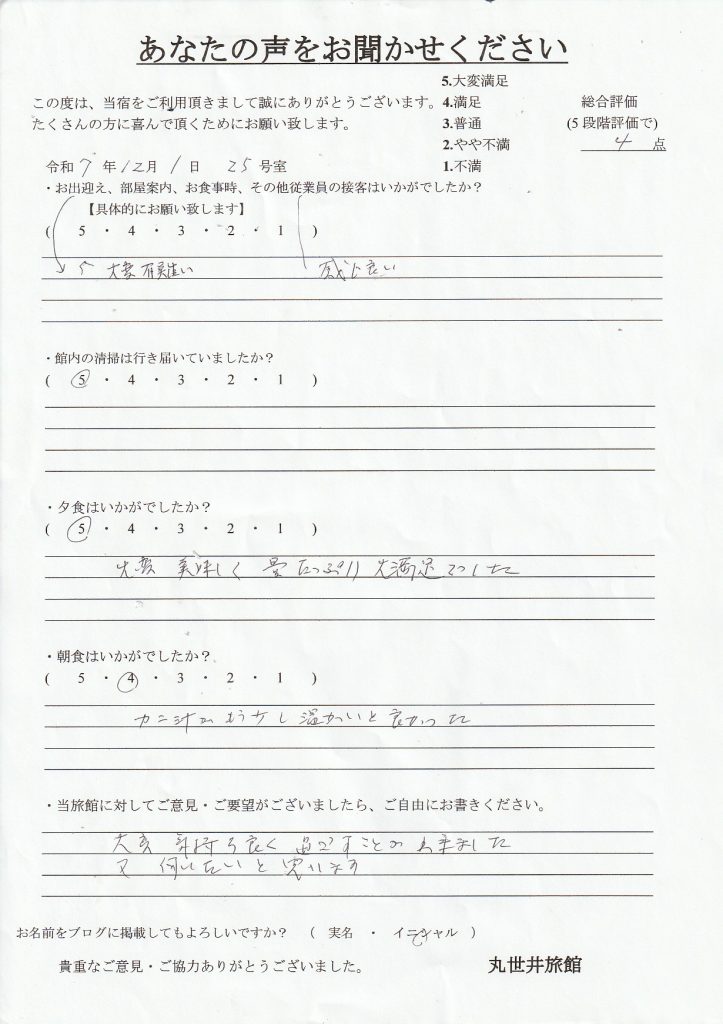 あなたの声をお聞かせください
5.大変満足
この度は、当宿をご利用頂きまして誠にありがとうございます。4.満足 総合評価
たくさんの方に喜んで頂くためにお願い致します。 3.普通 (5段階評価で)
2.やや不満 4 点
令和7年12月1日 25号室 1.不満
・お出迎え、部屋案内、お食事時、その他従業員の接客はいかがでしたか?
【具体的にお願い致します】
( 5 ・ 4 ・ 3 ・ 2 ・ 1 )
大変有難い 感じ良い
・館内の清掃は行き届いていましたか?
( 5 ・ 4 ・ 3 ・ 2 ・ 1 )
・夕食はいかがでしたか?
( 5 ・ 4 ・ 3 ・ 2 ・ 1 )
大変 美味しく 量たっぷり 大満足でした
・朝食はいかがでしたか?
( 5 ・ 4 ・ 3 ・ 2 ・ 1 )
カニ汁がもう少し温かいと良かった
・当旅館に対してご意見・ご要望がございましたら、ご自由にお書きください。
大変 気持ち良く 過ごすことが出来ました
又 伺いたいと思います
お名前をブログに掲載してもよろしいですか? ( 実名 ・ イニシャル )
貴重なご意見・ご協力ありがとうございました。 丸世井旅館